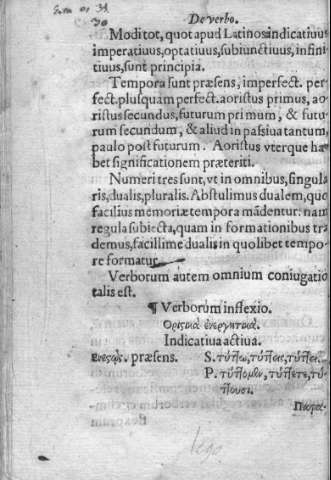 De verbo.
Modi tot, quot apud Latinos indicatiuus
imperatiuus, optatiuus, subiunctiuus, infini
tiuus, sunt principia.
Tempora sunt præsens, imperfect. per
fect. plusquam perfect. aoristus primus, ao
ristus secundus, futurum primum, & futu
rum secundum, & aliud in passiua tantum,
paulo post futurum. Aoristus vterque ha
bet significationem præteriti.
Numeri tres sunt, vt in omnibus, singula
ris, dualis, pluralis. Abstulimus dualem, quo
facilius memoriæ tempora mādentur: nam
regula subiecta, quam in formationibus tra
demus, facillime dualis in quolibet tempo
re formatur.
Verborum autem omnium coniugatio
talis est.
¶ Verborum inflexio.
Ὁριστικὰ ἐνεργητικά.
Indicatiua actiua.
Ενεστώς. præsens. S. τύπτω, τύπτεις, τύπτει.
P. τύπτομεν, τύπτετε, τύ
πτουσι.
lego